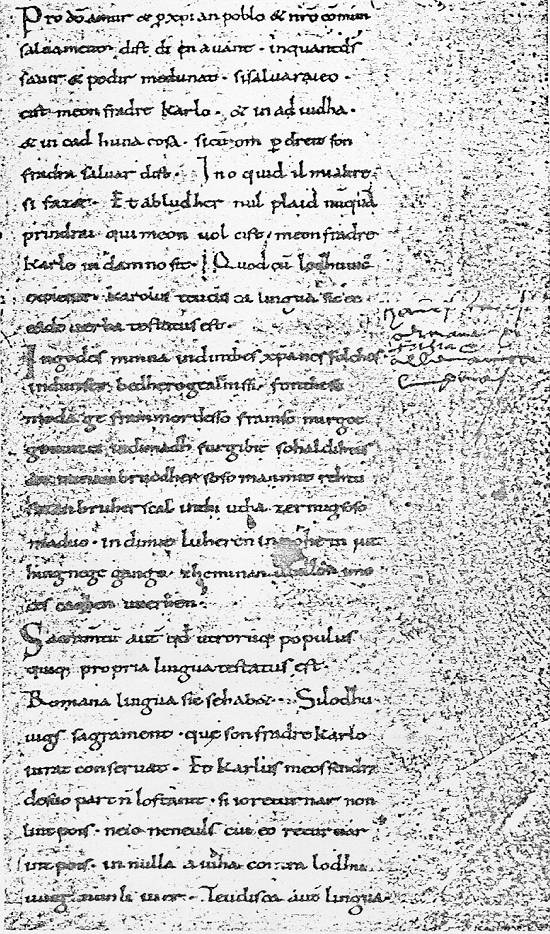 Pro dō amur & p xp̄ian poblo & nr̄o cōmun
saluament · dist di en auant · inquantd̄s
sauir & podir medunat · sisaluaraieo ·
cist meon fradre Karlo · & in ad iudha ·
& in cad huna cosa · sicū om p dreit son
fradra saluar dist · Ino quid il mialtre
si faz& · Et abludher nul plaid nūquā
prindrai · qui meon uol cist · meonfradre
Karle in damno sit · Quod cū lodhuuic
explesset · Karolus teudisca lingua sic ec
eadē uerba testatus est ·
Ingodes minna indinthes xp̄anes folches
indunser bedhero gealtnissi · fonthese
moda ge frammordesso framso mirgot
geuuizci indimadh furgibit sohaldihtes
an minan bruodher soso manmit rehtu
sinan bruher scal inthi utha zermigsoso
maduo · indimit luheren in nothein iut
hing nege gango · zheminan uuillon imo
ces cadhen uuerhen ·
Sacramentū autē qd̄ utrorūq; populus
quiq; propria lingua testatus est ·
Romana lingua sic se hab& · Silodhu
uigs sagrament · que son fradre Karlo
iurat conseruat · Et Karlus meos sendra
desuo part n̄ lostanit · si ioreturnar non
lint pois · neio neneuls cui eo returnar
int pois · in nulla aiudha contra lodhu
uuig nunli iuer · Teudisca autē lingua ·